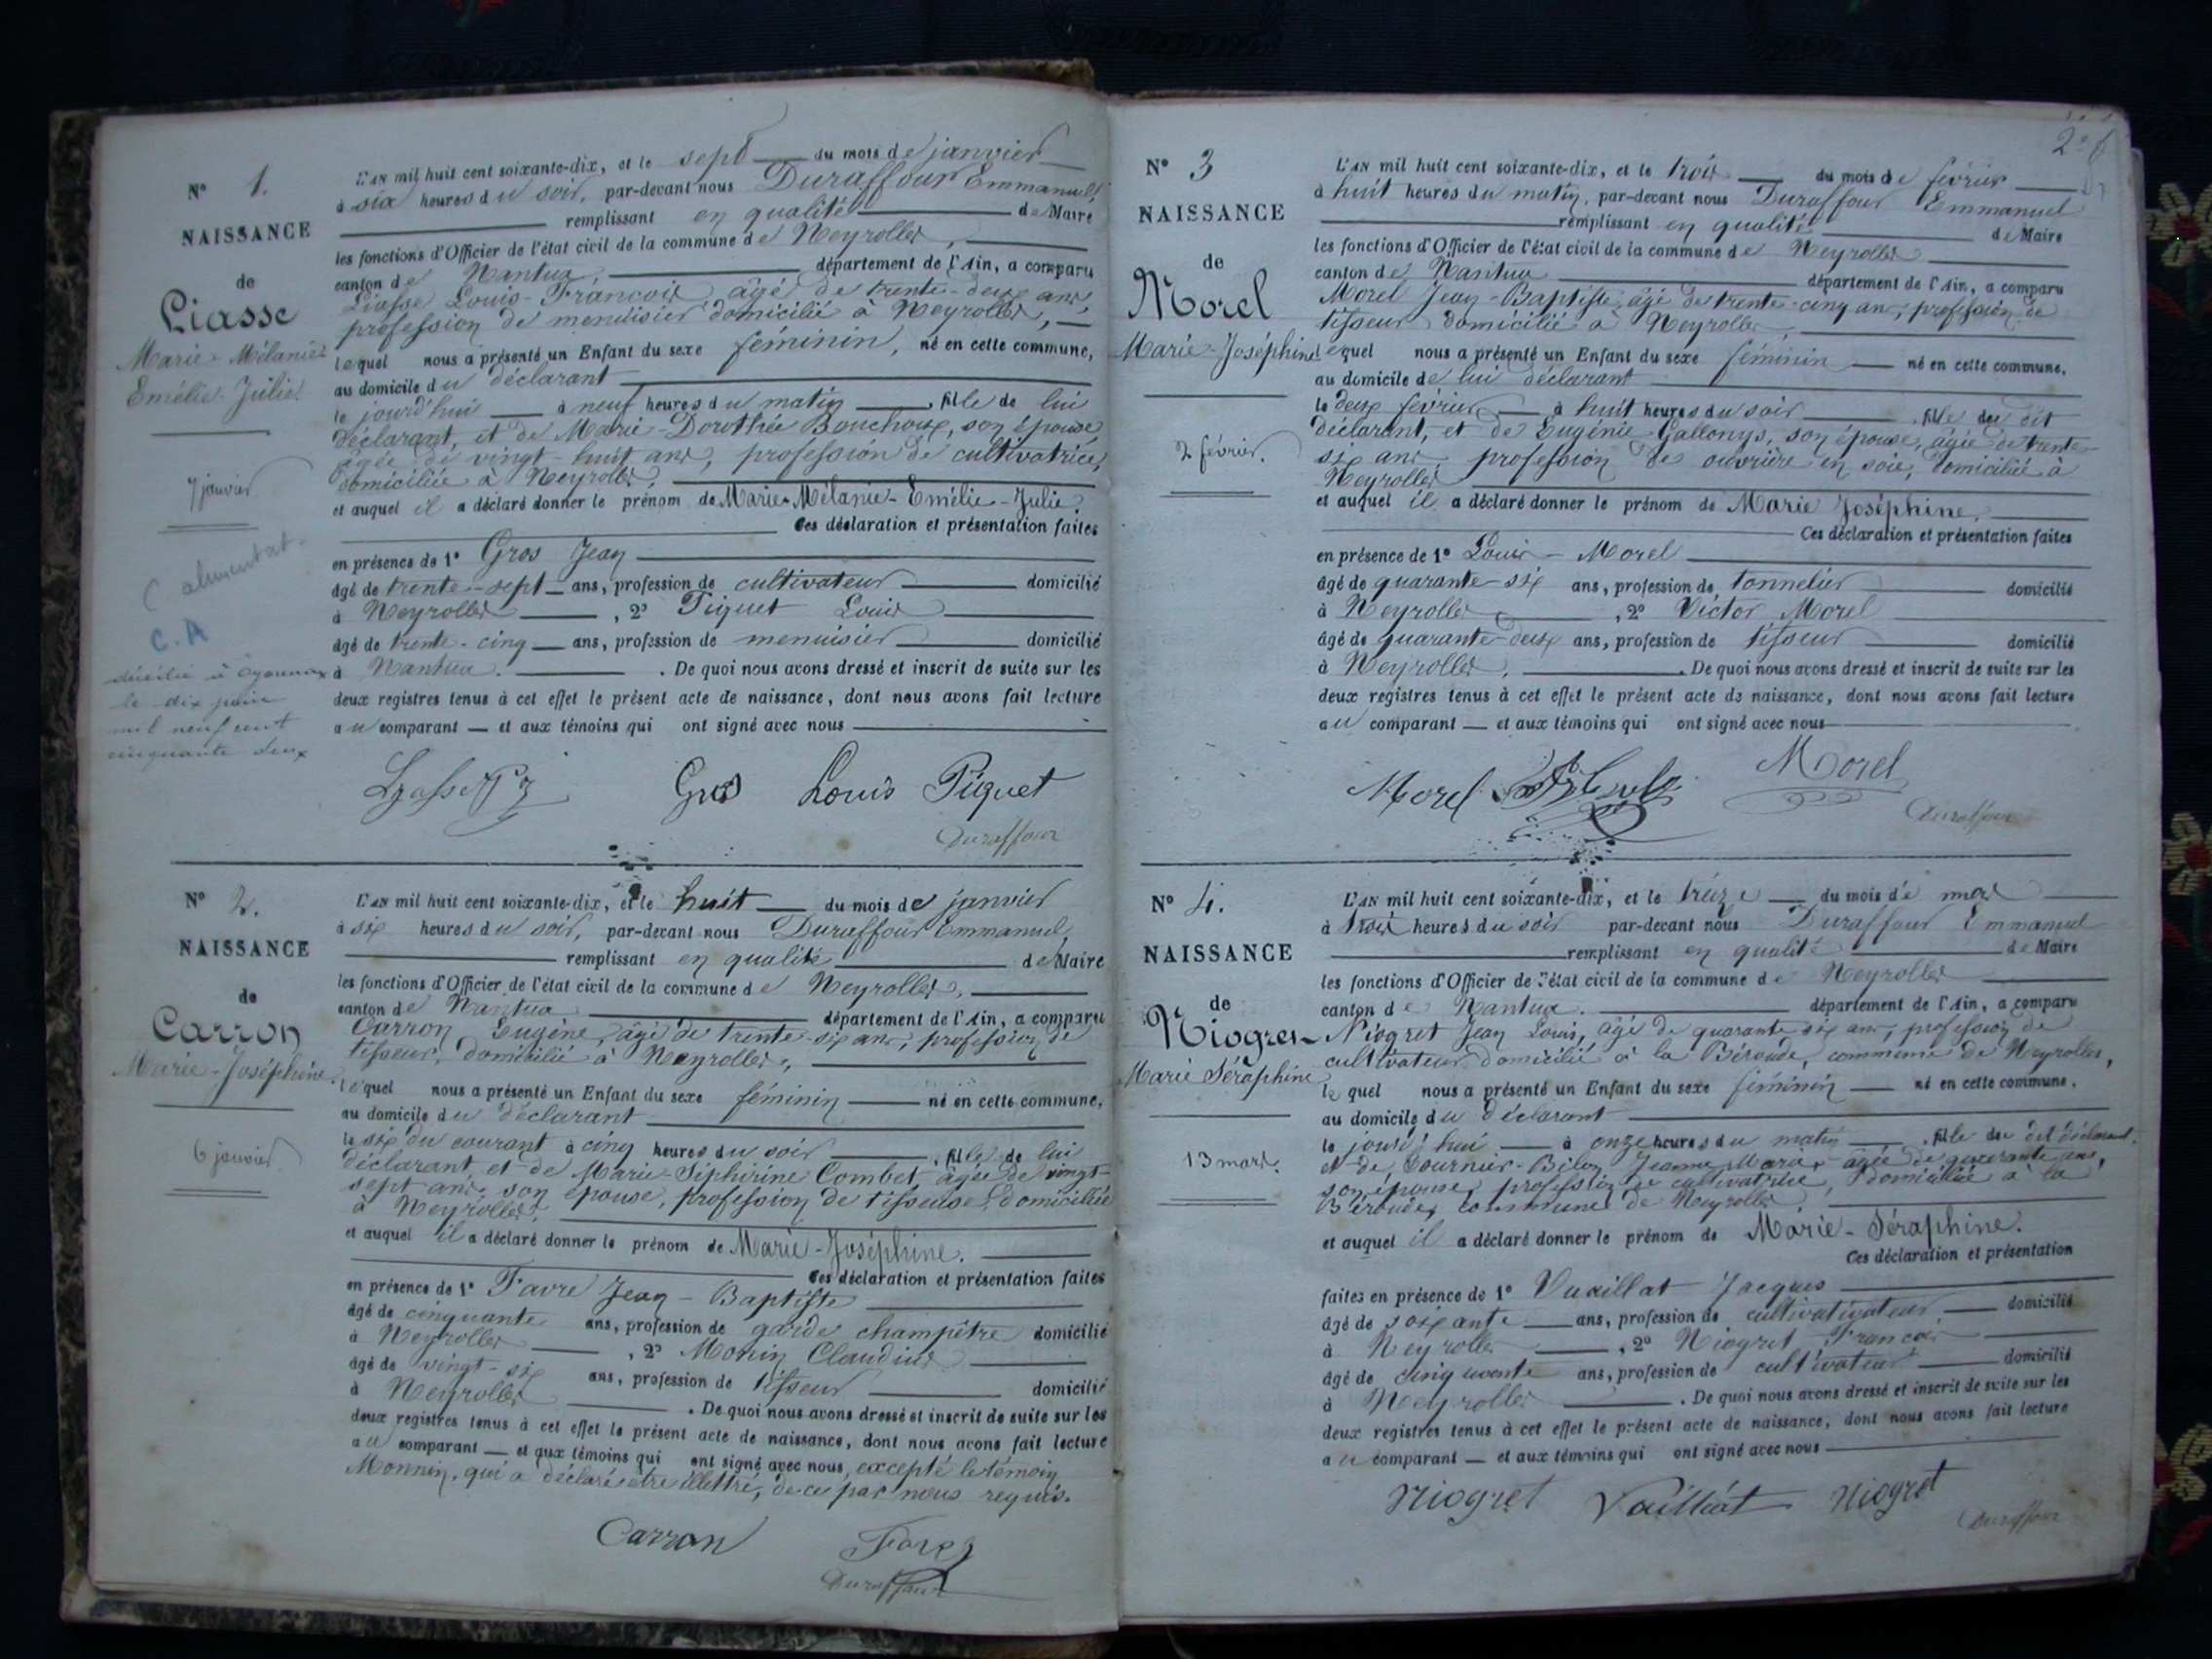 N° 1.
NAISSANCE
de
Liasse
Marie-Mélanie-
Emélie-Julie.
7 janvier
C. A
décédée à Oyonnax
le dix juin
mil neuf cent
cinquante deux
L'AN mil huit cent soixante-dix, et le sept du mois de janvier
à six heures du soir, par-devant nous Duraffour Emmanuel,
remplissant en qualité de Maire
les fonctions d'Officier de l'état civil de la commune de Neyrolles,
canton de Nantua, département de l'Ain, a comparu
Liasse Louis-François âgé de trente-deux ans,
profession de menuisier domicilié à Neyrolles,
lequel nous a présenté un Enfant du sexe féminin, né en cette commune,
au domicile du déclarant
le jourd'hui à neuf heures du matin, fille de lui
déclarant, et de Marie-Dorothée Bouchoux, son épouse,
âgée de vingt-huit ans, profession de cultivatrice,
domiciliée à Neyrolles,
et auquel il a déclaré donner le prénom de Marie-Mélanie-Emélie-Julie.
Ces déclaration et présentation faites
en présence de 1° Gros Jean
âgé de trente-sept ans, profession de cultivateur domicilié
à Neyrolles, 2° Piquet Louis
âgé de trente-cinq ans, profession de menuisier domicilié
à Nantua. De quoi nous avons dressé et inscrit de suite sur les
deux registres tenus à cet effet le présent acte de naissance, dont nous avons fait lecture
au comparant et aux témoins qui ont signé avec nous
Gros Louis Piquet
Duraffour
N° 2.
NAISSANCE
de
Carron
Marie-Joséphine
6 janvier.
L'AN mil huit cent soixante-dix, et le huit du mois de janvier
à six heures du soir, par-devant nous Duraffour Emmanuel,
remplissant en qualité de Maire
les fonctions d'Officier de l'état civil de la commune de Neyrolles,
canton de Nantua département de l'Ain, a comparu
Carron Eugène, âgé de trente-six ans, profession de
tisseur, domicilié à Neyrolles,
lequel nous a présenté un Enfant du sexe féminin né en cette commune,
au domicile du déclarant
le six du courant à cinq heures du soir, fille de lui
déclarant, et de Marie-Séphirine Combet, âgée de vingt-
sept ans, son épouse, profession de tisseuse, domiciliée
à Neyrolles,
et auquel il a déclaré donner le prénom de Marie-Joséphine.
Ces déclaration et présentation faites
en présence de 1° Favre Jean-Baptiste
âgé de cinquante ans, profession de garde champêtre domicilié
à Neyrolles, 2° Monin Claudius
âgé de vingt-six ans, profession de tisseur domicilié
à Neyrolles. De quoi nous avons dressé et inscrit de suite sur les
deux registres tenus à cet effet le présent acte de naissance, dont nous avons fait lecture
au comparant et aux témoins qui ont signé avec nous, excepté le témoin
Monnin, qui a déclaré être illettré, de ce par nous requis.
Carron
Duraffour
N° 3
NAISSANCE
de
Morel
Marie-Joséphine
2 février.
L'AN mil huit cent soixante-dix, et le trois du mois de février
à huit heures du matin, par-devant nous Duraffour Emmanuel
remplissant en qualité de Maire
les fonctions d'Officier de l'état civil de la commune de Neyrolles
canton de Nantua département de l'Ain, a comparu
Morel Jean-Baptiste, âgé de trente-cinq ans, profession de
tisseur domicilié à Neyrolles,
lequel nous a présenté un Enfant du sexe féminin né en cette commune,
au domicile de lui déclarant
le deux février à huit heures du soir, fille du dit
déclarant, et de Eugénie Gallonys, son épouse, âgée de trente-
six ans profession de ouvrière en soie, domiciliée à
Neyrolles
et auquel il a déclaré donner le prénom de Marie Joséphine.
Ces déclaration et présentation faites
en présence de 1° Louis-Morel
âgé de quarante-six ans, profession de tonnelier domicilié
à Neyrolles, 2° Victor Morel
âgé de quarante-deux ans, profession de tisseur domicilié
à Neyrolles. De quoi nous avons dressé et inscrit de suite sur les
deux registres tenus à cet effet le présent acte de naissance, dont nous avons fait lecture
au comparant et aux témoins qui ont signé avec nous
Morel Morel
Duraffour
N° 4.
NAISSANCE
de
Niogret
Marie Séraphine
13 mars.
L'AN mil huit cent soixante-dix, et le treize du mois de mars
à trois heures du soir par-devant nous Duraffour Emmanuel
remplissant en qualité de Maire
les fonctions d'Officier de l'état civil de la commune de Neyrolles
canton de Nantua. département de l'Ain, a comparu
Niogret Jean Louis, âgé de quarante six ans, profession de
cultivateur domicilié à la Béroude, commune de Neyrolles,
lequel nous a présenté un Enfant du sexe féminin né en cette commune,
au domicile du déclarant
le jourd'hui à onze heures du matin, fille du dit déclarant,
et de Tournier-Billon Jeanne Marie, âgée de quarante ans,
son épouse, profession de cultivatrice, domiciliée à la
Béroude, commune de Neyrolles,
et auquel il a déclaré donner le prénom de Marie-Séraphine.
Ces déclaration et présentation
faites en présence de 1° Vuaillat Jacques
âgé de soixante ans, profession de cultivativateur domicilié
à Neyrolles, 2° Niogret François
âgé de cinquante ans, profession de cultivateur domicilié
à Neyrolles. De quoi nous avons dressé et inscrit de suite sur les
deux registres tenus à cet effet le présent acte de naissance, dont nous avons fait lecture
au comparant et aux témoins qui ont signé avec nous
Niogret Vailliat Niogret
Duraffour